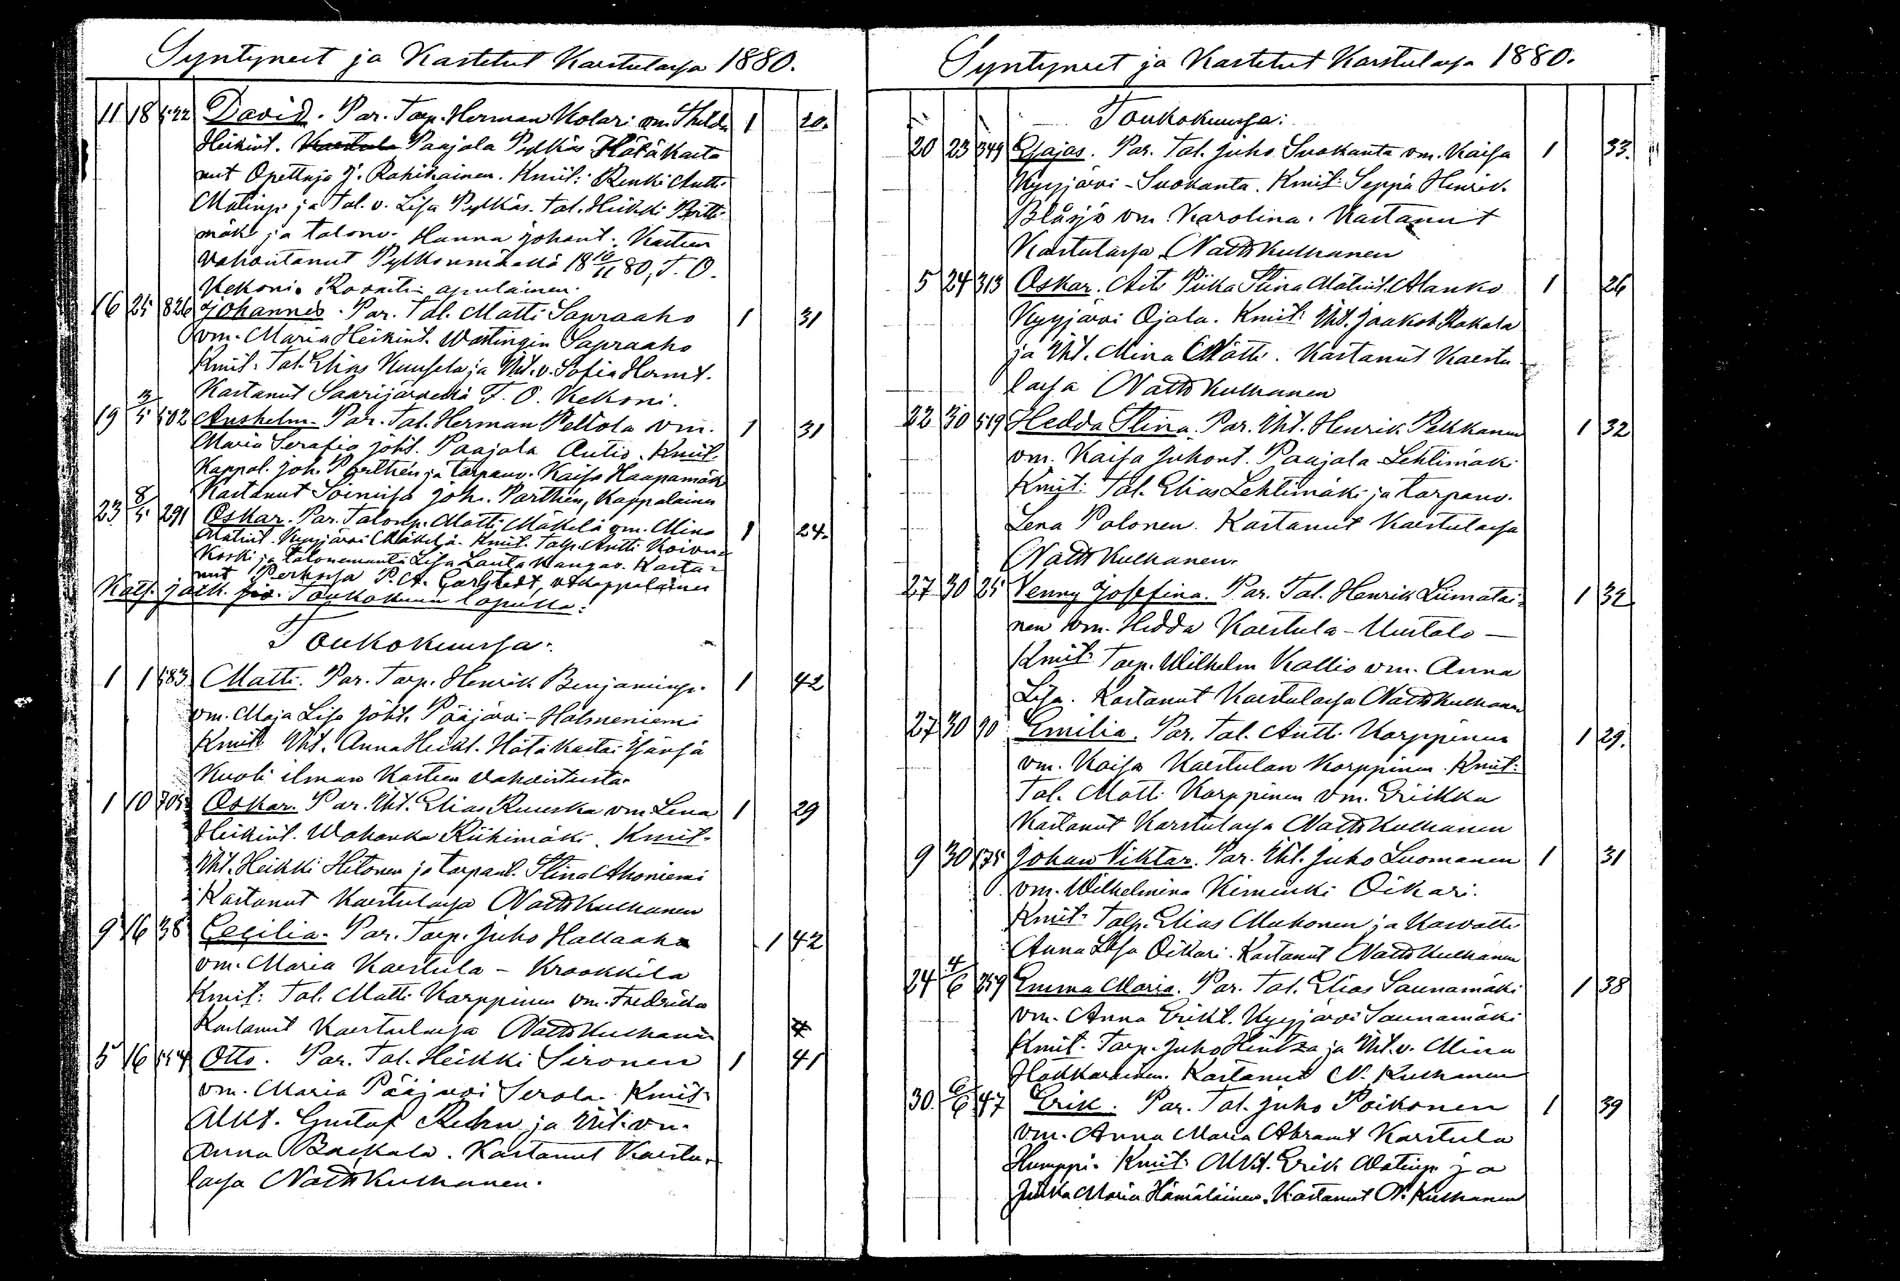 Syntyneet ja Kastetut Karstulassa 1880.
11 18 522 David. Par. Torp. Herman Kolari vm. Thilda 1 20.
Heikint. Paajala Pylkäs Hätäkasta
nut Opettaja J. Rahikainen. Kmit: Renki Antti
Matinp. ja Tal. v. Lisa Pylkäs. Tal. Heikki Pertti
mäki ja talonv. Hanna Johant. Kasteen
vahvistanut Pylkönmäellä 18 16/11 80, F. O.
Kekoni. Rovastin apulainen.
16 25 826 Johannes. Par. Tal. Matti Sapraaho 1 31
vm. Maria Heikint. Wastingin Sapraaho
Kmit. Tal. Elias Kuusela ja Iht. v. Sofia Hermt.
Kastanut Saarijärvellä F. O. Kekoni.
19 3/5 502 Anshelm. Par. Tal. Herman Peltola vm. 1 31
Maria Serafia Joht. Paajala Autio. Kmit.
Kappal. Joh. Parthén ja torpanv. Kaisa Haapamäki
Kastanut Soinissa Joh. Parthén, Kappalainen
23 8/5 291 Oskar. Par. Talonp. Matti Mäkelä vm. Mina 1 24.
Matint. Kyyjärvi Mäkelä. Kmit. Talp. Antti Koivu-
koski ja talonemäntä Lisa Kangas. Kasta-
nut Perhossa P. A. Carlstedt, vt Kappalainen
Kats. jatk. Toukokuun lopulla:
Toukokuussa:
1 1 583 Matti. Par. Torp. Henrik Benjaminp. 1 42
vm. Maja Lisa Joht. Pääjärvi-Halmeniemi
Kmit Iht. Anna Heikt. Hätäkastai
Kuoli ilman Kasteen vahvistusta.
1 10 705 Oskar. Par. Iht. Elias Ruuska vm Lena 1 29
Heikint. Wahanka Riihimäki. Kmit.
Iht. Heikki Hitonen ja torpant. Stina Ahoniemi
Kastanut Karstulassa Natth Kulhanen
9 16 38 Cecilia. Par. Torp. Juho Hallaaho 1 42
vm. Maria Karstula - Kraakkila
Kmit: Tal. Matti Karppinen vm. Fredrika
Kastanut Karstulassa Natth Kulhanen
5 16 Otto. Par. Tal. Heikki Sironen 1 41
vm. Maria Pääjärvi Serola. Kmit:
Mkt. Gustaf Rehn ja Iht. vm.
Anna Backala. Kastanut Karstu-
lassa Natth Kulhanen.
Syntyneet ja Kastetut Karstulassa 1880.
Toukokuussa:
20 23 349 Esajas. Par. Tal. Juho Suokanta vm. Kaisa 1 33.
Kyyjärvi-Suokanta. Kmit: Seppä Henrik
Blåsjö vm Karolina. Kastanut
Karstulassa Natth Kulhanen
5 24 313 Oskar. Äiti Piika Stina Matint. Alanko 1 26
Kyyjärvi Ojala. Kmit: Iht. Jaakob Kakala
ja Iht. Mina Mätti. Kastanut Karstu-
lassa Natth Kulhanen
22 30 519 Hedda Stina. Par. Iht. Henrik Pelkkanen 1 32
vm. Kaisa Juhont. Paajala Lehtimäki
Kmit: Tal. Elias Lehtimäki ja torpanv.
Lena Polonen. Kastanut Karstulassa
Natth Kulhanen.
27 30 25 Venny Josefina. Par. Tal. Henrik Liimatai- 1 32
nen vm. Hedda Karstula-Uustalo-
Kmit: Torp. Wilhelm Kallio vm. Anna
Lisa. Kastanut Karstulassa Natth Kulhanen
27 30 90 Emilia. Par. Tal. Antti Karppinen 1 29.
vm. Kaisa Karstulan Karppinen. Kmit:
Tal. Matti Karppinen vm. Eriikka
Kastanut Karstulassa Natth Kulhanen
9 30 675 Johan Viktar. Par. Iht. Juho Luomanen 1 31
vm. Wilhelmina Kiminki Oikari.
Kmit: Talp. Elias Muhonen ja Kasvatti
Anna Lisa Oikari. Kastanut Natth Kulhanen
24 4/6 259 Emma Maria. Par. Tal. Elias Saunamäki 1 38
vm. Anna Erikt. Kyyjärvi Saunamäki
Kmit. Torp. Juho Hintza ja Iht. v. Mina
Hakkarainen. Kastanut N. Kulhanen
30. 6/6 47 Erik. Par. Tal. Juho Poikonen 1 39
vm. Anna Maria Abramt Karstula
Humppi. Kmit: Mkt. Erik Matinp ja
Maria Hämäläinen. Kastanut N. Kulhanen